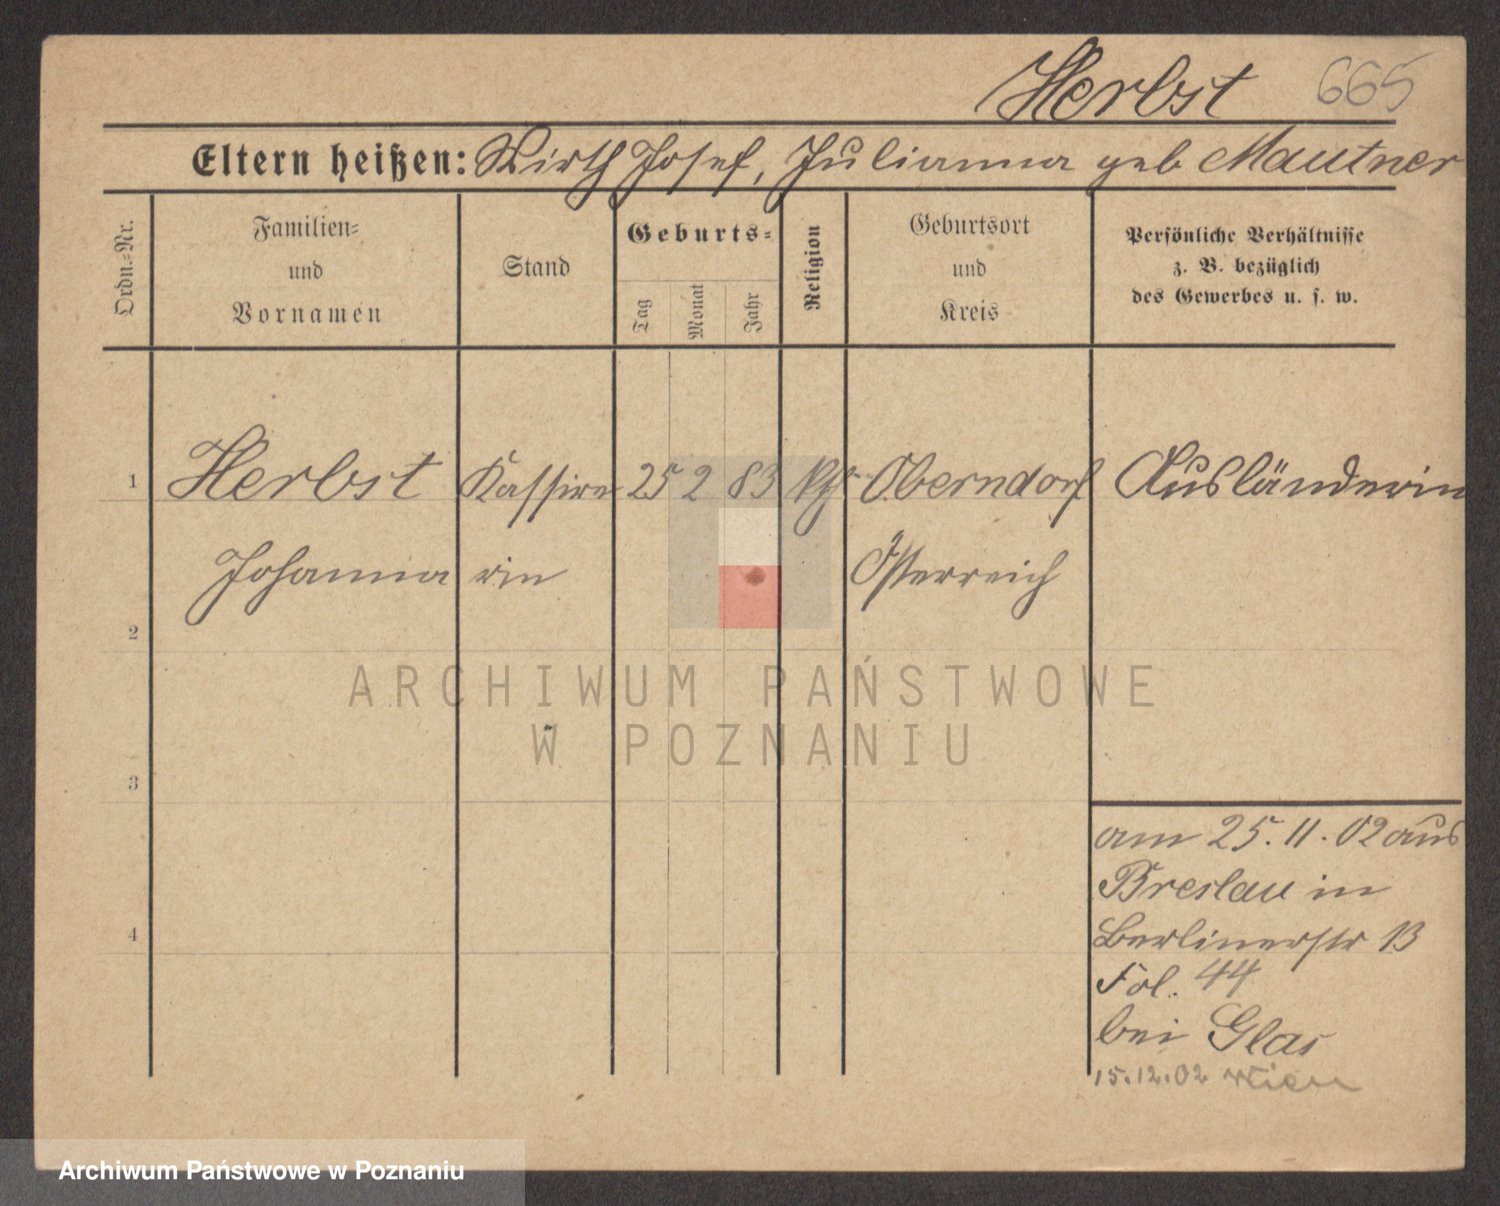 Herbst 665
Eltern heißen: Wirth Josef, Julianna geb Mautner
Ordn.-Nr.
Familien-
und
Vornamen
Stand
Geburts-
Tag
Monat
Jahr
Religion
Geburtsort
und
Kreis
Persönliche Verhältnisse
z. B. bezüglich
des Gewerbes u. s. w.
1 Herbst Kassire 25 2 83 Oberndorf Ausländerin
Johanna rin Österreich
2
3
4
ARCHIWUM PAŃSTWOWE
W POZNANIU
am 25.11.02 aus
Breslau in
Berlinerstr 13
Fol. 44
bei Glas
15.12.02 Wien
Archiwum Państwowe w Poznaniu